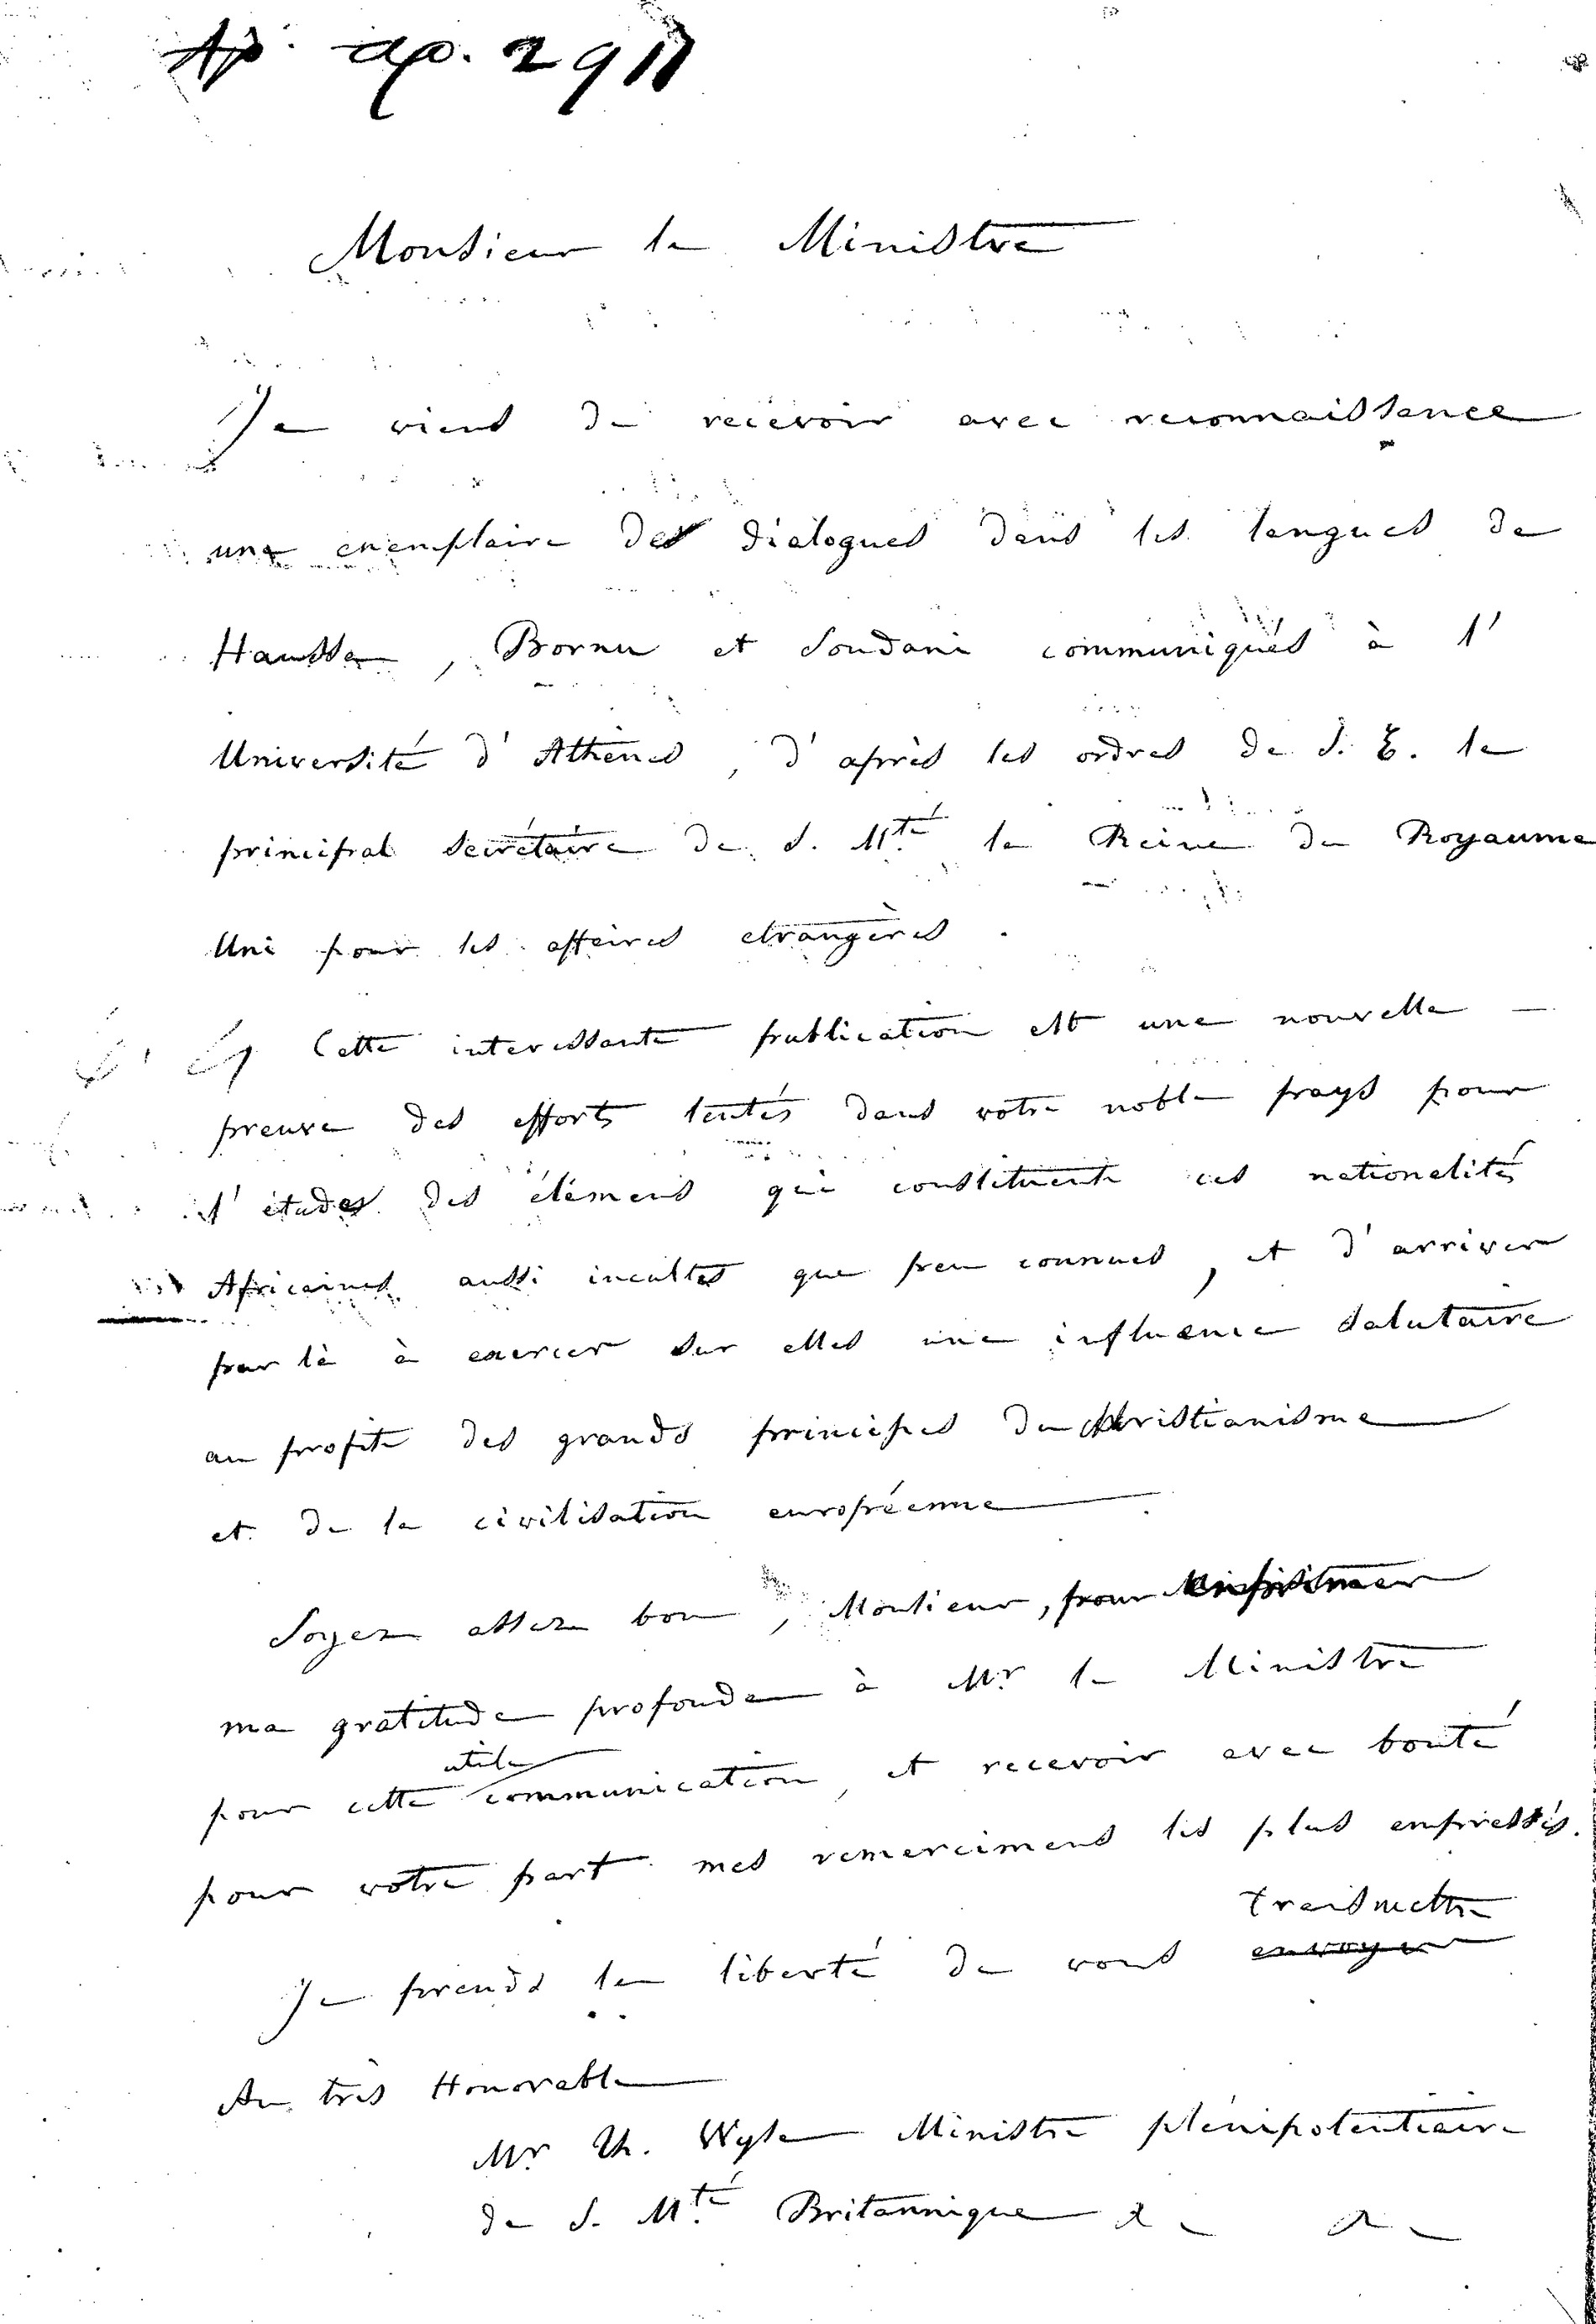 Ap. ap. 2911
Monsieur le Ministre
Je viens de recevoir avec reconnaissance
une exemplaire des dialogues dans les langues de
Haussa, Bornu et Soudani communiqués à l'
Université d'Athènes, d'après les ordres de S. E. le
principal secrétaire de S. Mté la Reine du Royaume
Uni pour les affaires etrangères.
Cette interessante publication est une nouvelle
preuve des efforts tentés dans votre noble pays pour
l'étude des élémens qui constituent ces nationalités
Africaines aussi incultes que peu connues, et d'arriver
par là à exercer sur elles une influence salutaire
au profit des grands principes du christianisme
et de la civilisation européenne
Soyez assez bon, Monsieur, pour exprimer
ma gratitude profonde à Mr le Ministre
utile
pour cette communication, et recevoir avec bonté
pour votre part mes remercimens les plus empressés.
transmettre
Je prends la liberté de vous envoyer
Au très Honorable
Mr Th. Wyse Ministre plénipotentiaire
de S. Mté Britannique